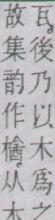 瓦後乃以木為之
故集韵作檐从木